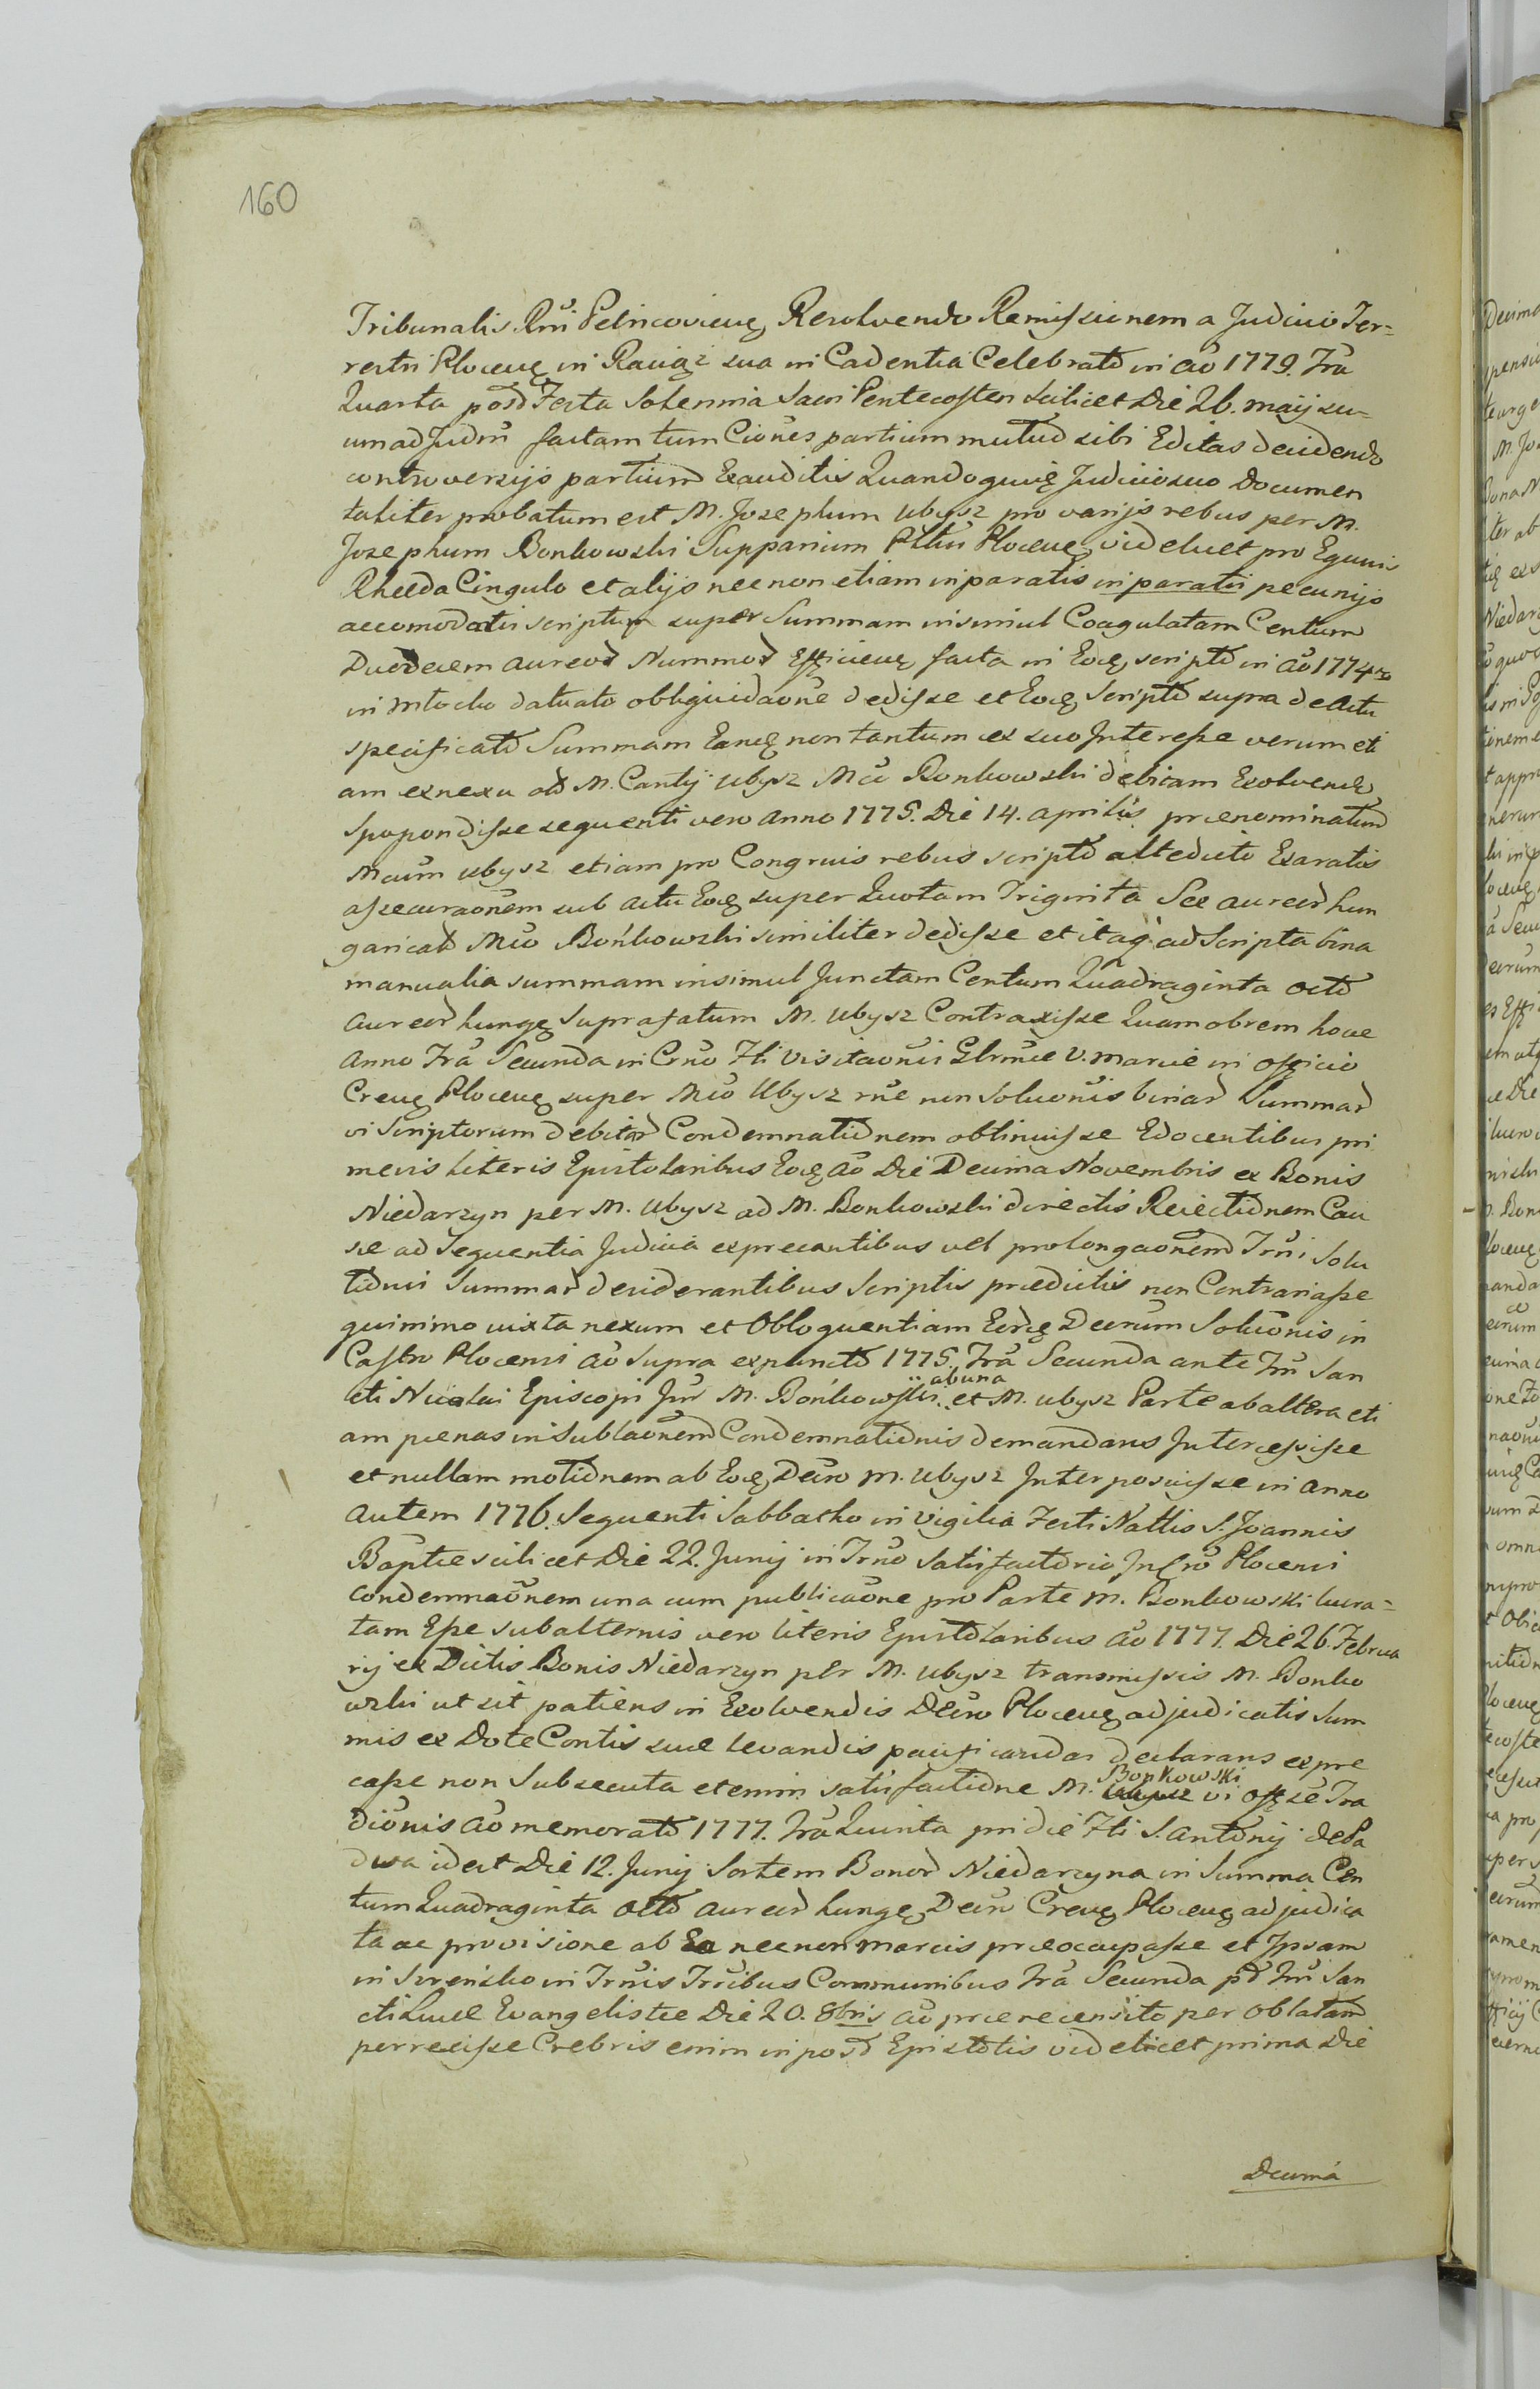 160
Tribunalis Rni Petricovien Resolvendo Remissionem a Judicio Ter-
restri Plocen in Raciąż sua in Cadentia Celebrato in ao 1779. Fra
Quarta post Festa Solennia Sacri Pentecosten scilicet Die 26. maij su-
um ad Judm factam tum Ciones partium mutuo sibi Editas decidendo
controversijs partium Exauditis Quandoquidem Judicio suo Documen
taliter probatum est M. Josephum Ubysz pro varijs rebus per M.
Josephum Bonkowski Supparium Plocen videlicet pro Equis
Rheda Cingulo et alijs nec non etiam in paratis in paratis pecunijs
accomodatis scriptum super Summam insimul Coagulatam Centum
Duodecem aureor Nummor Efficien facta in Eoq scripto in ao 1774to
in Mlocko datuato obligvidaone dedisse et Eoq Scripto supra de Actu
specificato Summam Eanq non tantum ex suo Interesse verum eti
am ex nexu olb M. Cantij Ubysz Mco Bonkowski debitam Exolvend
spopondisse sequenti vero Anno 1775. Die 14. Aprilis praenominatum
Mcum Ubysz etiam pro Congruis rebus scripto attedicto Exaratis
assecuraonem sub actu Eoq super Quotam Triginta Sex aureor hun
garicalo Mco Bońkowski similiter dedisse et itaq ad Scripta bina
manualia summam insimul Junctam Centum Quadraginta octo
Aureor hung suprafatum M. Ubysz Contraxisse Quamobrem hoce
Anno Fra Secunda in Crno Fti Visitaonis Glrnae V. Mariae in officio
Creng Plocen super Mco Ubysz rne non Soluonis binar Summar
vi Scriptorum debitar Condemnationem obtinuisse Edocentibus pri
mevis literis Epistolaribus Eoq ao Die Decima Novembris ex Bonis
Niedarzyn per M. Ubysz ad M. Bonkowski directis Reiectionem Cau
sae ad Sequentia Judicia exprecantibus vel prolongaonem Trni Solu
tionis Summar desiderantibus Scriptis praedictis non Contrariasse
quinimo iuxta nexum et Obloquentiam Eorq Decrum Soluonis in
Castro Plocensi ao Supra expuncto 1775. Fra Secunda ante Fm San
cti Nicolai Episcopi Jnr M. Bońkowski ab una et M. Ubysz Parte ab altera eti
am paenas in Sublaonem Condemnationis demandans Intercessisse
et nullam motionem ab Eoq Decro M. Ubysz Interposuisse in Anno
autem 1776. Sequenti Sabbatho in vigilia Festi Natlis S. Joannis
Baptae scilicet Die 22. Junij in Trno Satisfactorio In Cro Plocensi
condemnaonem una cum publicaone pro Parte M. Bonkowski lucra-
tam Esse subalternis vero literis Epistolaribus ao 1777. Die 26. Februa
rij ex Dictis Bonis Niedarzyn per M. Ubysz transmissis M. Bonko
wski ut sit patiens in Exolvendis Decro Plocen adjudicatis Sum
mis ex Dote Contis suae levandis pacificandas declarans expre
casse non Subsecuta etenim satisfactione M. Bonkowski vi offssae Tra
dionis ao memorato 1777. Fra Quinta pridie Fti S. Antonij de Pa
dua idest Die 12. Junij Sortem Bonor Niedarzyna in Summa Cen
tum Quadraginta octo aureor hung Decro Creng Plocen adjudica
ta ac provisione ab Ea nec non marcis praeoccupasse et Ipsam
in Szreńsko in Trnis Trribus Communibus Fra Secunda pt Fm San
cti Lucae Evangelistae Die 20. 8bris ao praerecensito per Oblatam
perrexisse Crebris enim in post Epistolis videlicet prima Die
Decima